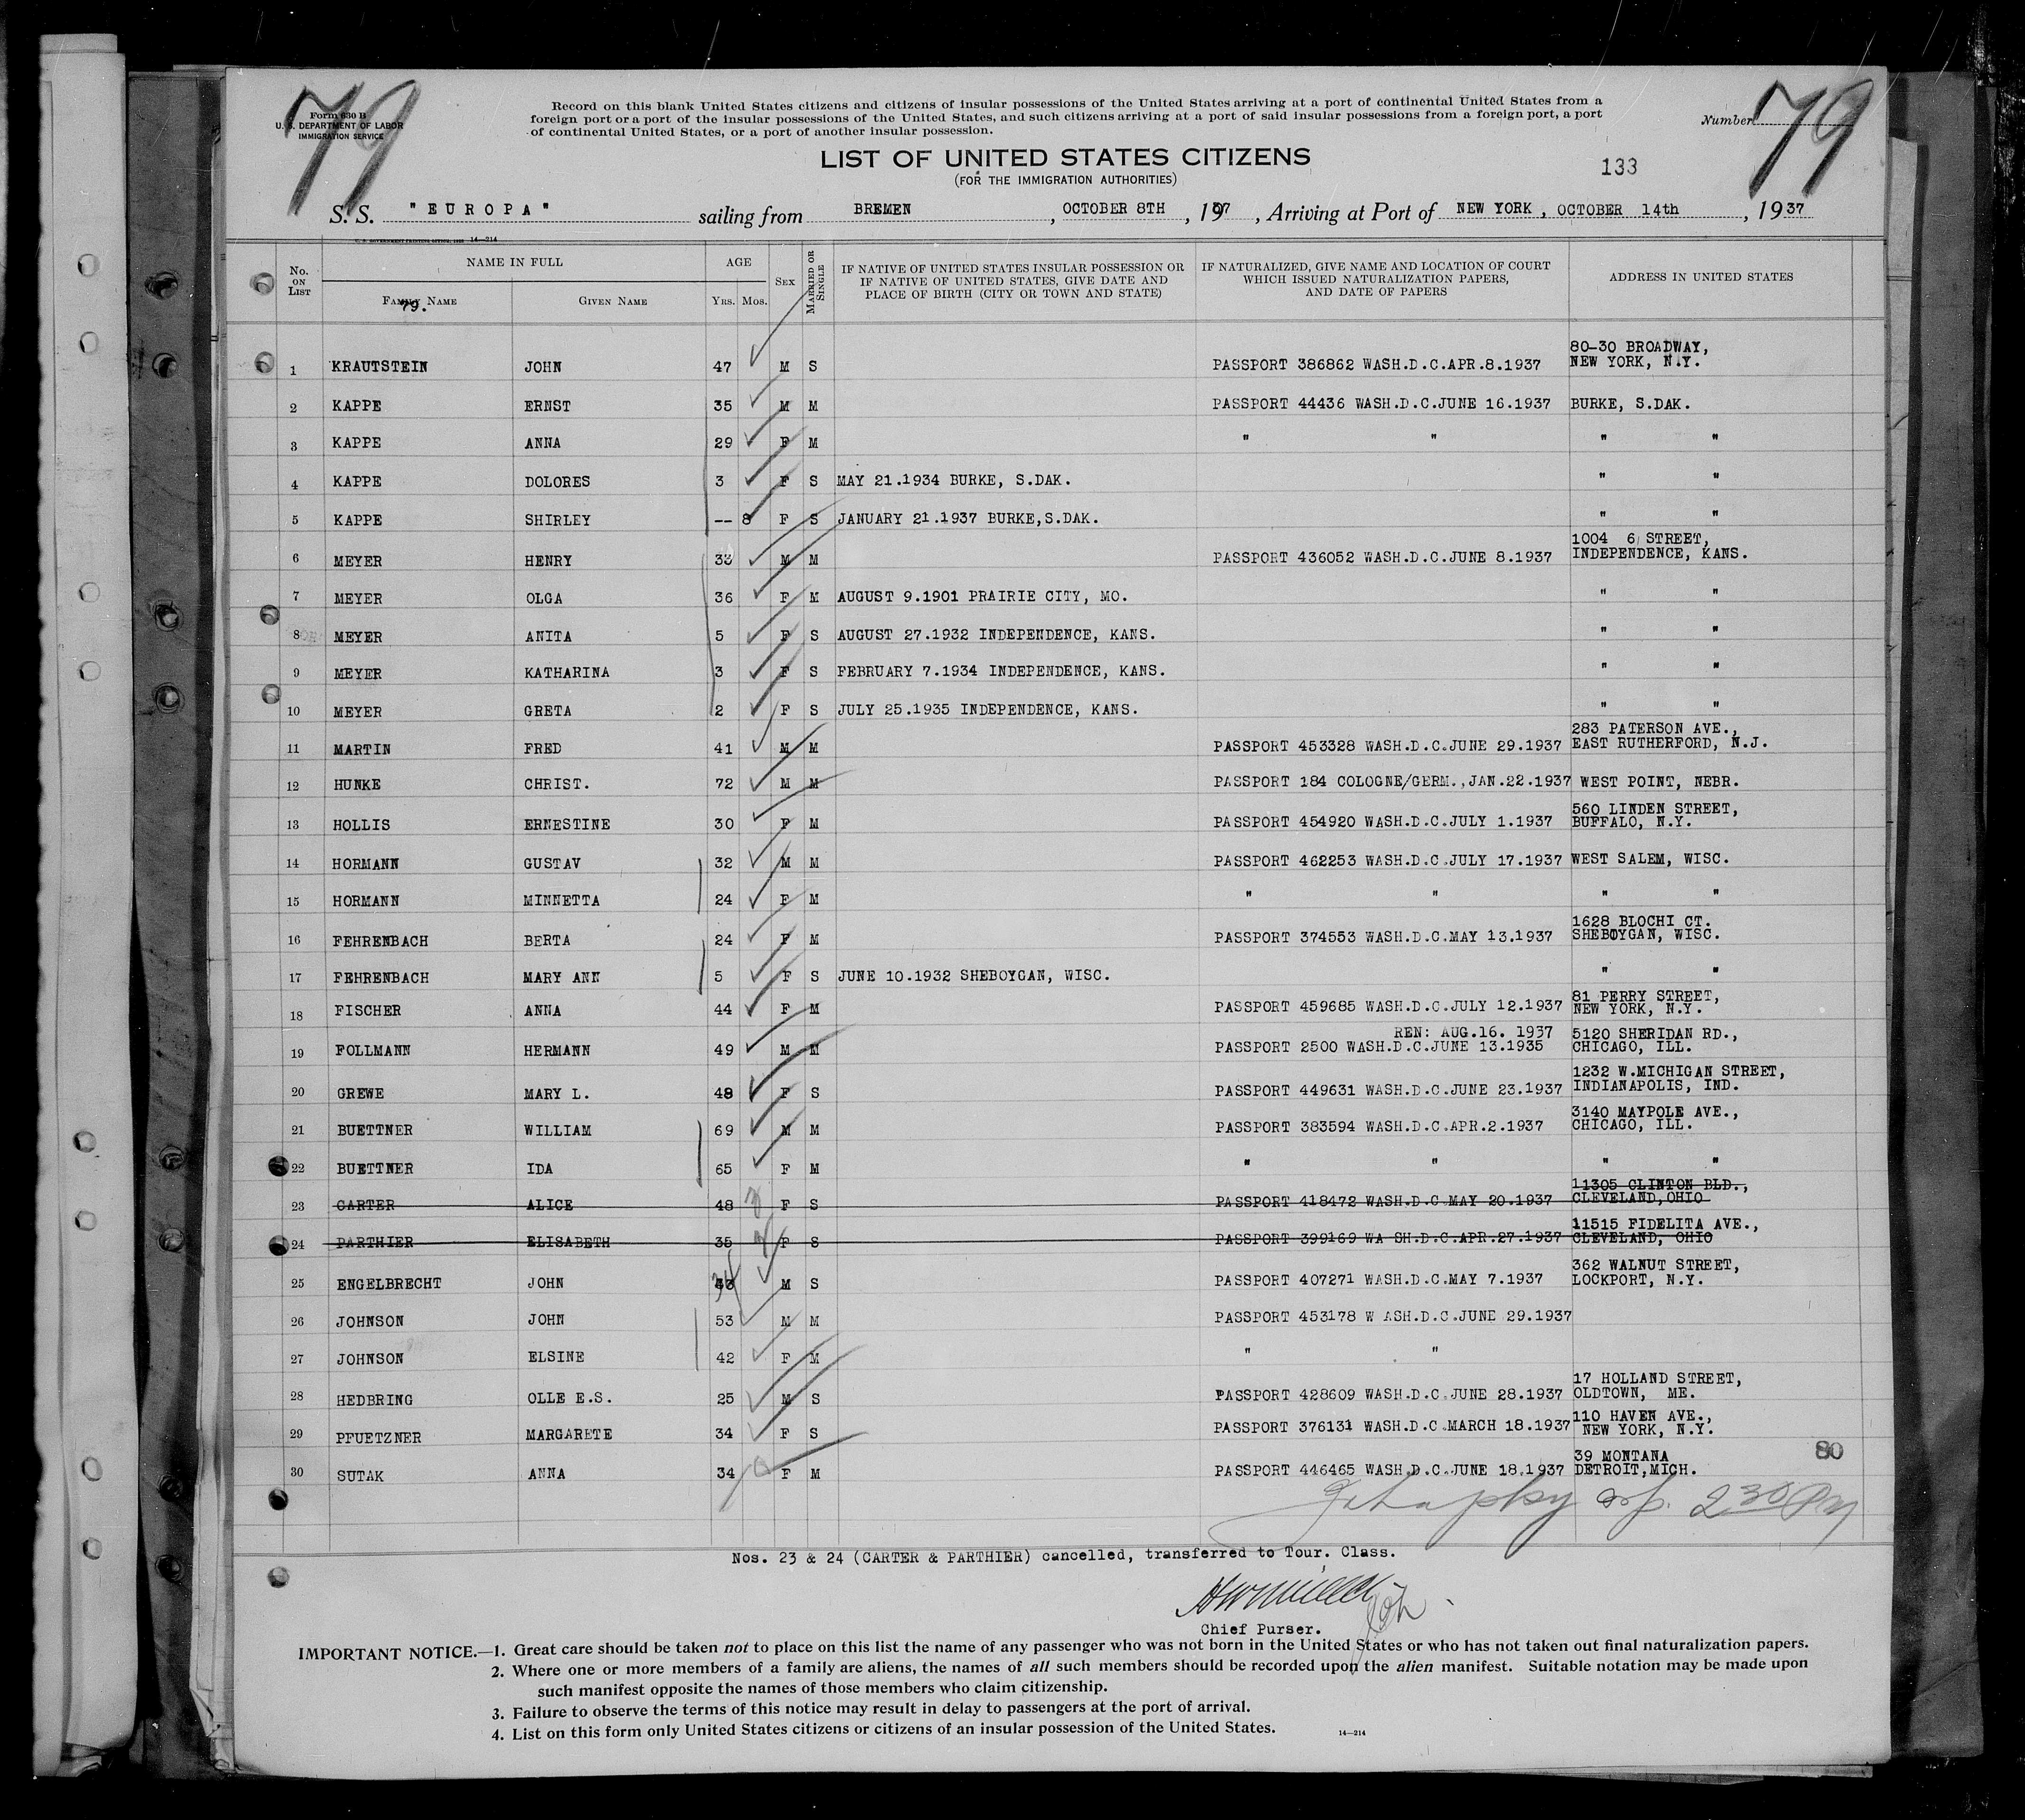 79
79
Form 630 B
U. S. DEPARTMENT OF LABOR
IMMIGRATION SERVICE
Record on this blank United States citizens and citizens of insular possessions of the United States arriving at a port of continental United States from a
foreign port or a port of the insular possessions of the United States, and such citizens arriving at a port of said insular possessions from a foreign port, a port
of continental United States, or a port of another insular possession.
Number
LIST OF UNITED STATES CITIZENS
(FOR THE IMMIGRATION AUTHORITIES)
133
S. S. "EUROPA" sailing from BREMEN, OCTOBER 8TH, 1937, Arriving at Port of NEW YORK, OCTOBER 14th, 1937
14—214
No. ON LIST
NAME IN FULL
FAMILY NAME
GIVEN NAME
79.
AGE
YRS. MOS.
SEX
MARRIED OR SINGLE
IF NATIVE OF UNITED STATES INSULAR POSSESSION OR
IF NATIVE OF UNITED STATES, GIVE DATE AND
PLACE OF BIRTH (CITY OR TOWN AND STATE)
IF NATURALIZED, GIVE NAME AND LOCATION OF COURT
WHICH ISSUED NATURALIZATION PAPERS,
AND DATE OF PAPERS
ADDRESS IN UNITED STATES
80-30 BROADWAY,
1 KRAUTSTEIN JOHN 47 M S PASSPORT 386862 WASH.D.C.APR.8.1937 NEW YORK, N.Y.
2 KAPPE ERNST 35 M M PASSPORT 44436 WASH.D.C.JUNE 16.1937 BURKE, S.DAK.
3 KAPPE ANNA 29 F M " " " "
4 KAPPE DOLORES 3 F S MAY 21.1934 BURKE, S.DAK. " "
5 KAPPE SHIRLEY -- 8 F S JANUARY 21.1937 BURKE,S.DAK. " "
1004 6 STREET,
6 MEYER HENRY 33 M M PASSPORT 436052 WASH.D.C.JUNE 8.1937 INDEPENDENCE, KANS.
7 MEYER OLGA 36 F M AUGUST 9.1901 PRAIRIE CITY, MO. " "
8 MEYER ANITA 5 F S AUGUST 27.1932 INDEPENDENCE, KANS. " "
9 MEYER KATHARINA 3 F S FEBRUARY 7.1934 INDEPENDENCE, KANS. " "
10 MEYER GRETA 2 F S JULY 25.1935 INDEPENDENCE, KANS. " "
283 PATERSON AVE.,
11 MARTIN FRED 41 M M PASSPORT 453328 WASH.D.C.JUNE 29.1937 EAST RUTHERFORD, N.J.
12 HUNKE CHRIST. 72 M M PASSPORT 184 COLOGNE/GERM.,JAN.22.1937 WEST POINT, NEBR.
560 LINDEN STREET,
13 HOLLIS ERNESTINE 30 F M PASSPORT 454920 WASH.D.C.JULY 1.1937 BUFFALO, N.Y.
14 HORMANN GUSTAV 32 M M PASSPORT 462253 WASH.D.C.JULY 17.1937 WEST SALEM, WISC.
15 HORMANN MINNETTA 24 F M " " " "
1628 BLOCHI CT.
16 FEHRENBACH BERTA 24 F M PASSPORT 374553 WASH.D.C.MAY 13.1937 SHEBOYGAN, WISC.
17 FEHRENBACH MARY ANN 5 F S JUNE 10.1932 SHEBOYGAN, WISC. " "
81 PERRY STREET,
18 FISCHER ANNA 44 F M PASSPORT 459685 WASH.D.C.JULY 12.1937 NEW YORK, N.Y.
REN: AUG.16. 1937 5120 SHERIDAN RD.,
19 FOLLMANN HERMANN 49 M M PASSPORT 2500 WASH.D.C.JUNE 13.1935 CHICAGO, ILL.
1232 W.MICHIGAN STREET,
20 GREWE MARY L. 48 F S PASSPORT 449631 WASH.D.C.JUNE 23.1937 INDIANAPOLIS, IND.
3140 MAYPOLE AVE.,
21 BUETTNER WILLIAM 69 M M PASSPORT 383594 WASH.D.C.APR.2.1937 CHICAGO, ILL.
22 BUETTNER IDA 65 F M " " " "
11305 CLINTON BLD.,
23 CARTER ALICE 48 F S PASSPORT 418472 WASH.D.C.MAY 20.1937 CLEVELAND,OHIO
11515 FIDELITA AVE.,
24 PARTHIER ELISABETH 35 F S PASSPORT 399169 WA SH.D.C.APR.27.1937 CLEVELAND, OHIO
362 WALNUT STREET,
25 ENGELBRECHT JOHN 34 M S PASSPORT 407271 WASH.D.C.MAY 7.1937 LOCKPORT, N.Y.
26 JOHNSON JOHN 53 M M PASSPORT 453178 W ASH.D.C.JUNE 29.1937
27 JOHNSON ELSINE 42 F M " "
17 HOLLAND STREET,
28 HEDBRING OLLE E.S. 25 M S PASSPORT 428609 WASH.D.C.JUNE 28.1937 OLDTOWN, ME.
110 HAVEN AVE.,
29 PFUETZNER MARGARETE 34 F S PASSPORT 376131 WASH.D.C.MARCH 18.1937 NEW YORK, N.Y.
39 MONTANA 80
30 SUTAK ANNA 34 F M PASSPORT 446465 WASH.D.C.JUNE 18.1937 DETROIT,MICH.
2 30 PM
Nos. 23 & 24 (CARTER & PARTHIER) cancelled, transferred to Tour. Class.
Chief Purser.
IMPORTANT NOTICE.—1. Great care should be taken not to place on this list the name of any passenger who was not born in the United States or who has not taken out final naturalization papers.
2. Where one or more members of a family are aliens, the names of all such members should be recorded upon the alien manifest. Suitable notation may be made upon
such manifest opposite the names of those members who claim citizenship.
3. Failure to observe the terms of this notice may result in delay to passengers at the port of arrival.
4. List on this form only United States citizens or citizens of an insular possession of the United States.
14—214